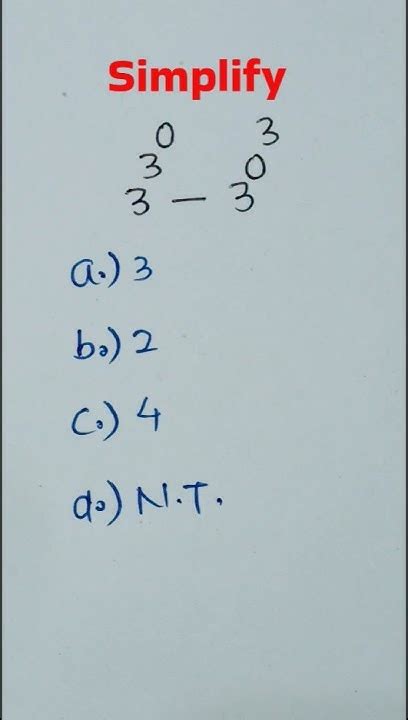 Simplify
3^3^0 - 3^0^3
a.) 3
b.) 2
c.) 4
d.) N.T.